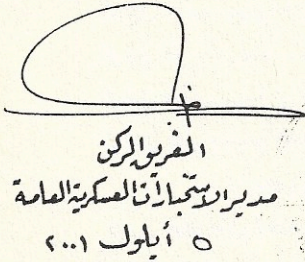 الفريق الركن
مدير الاستخبارات العسكرية العامة
٥ أيلول ٢٠٠١